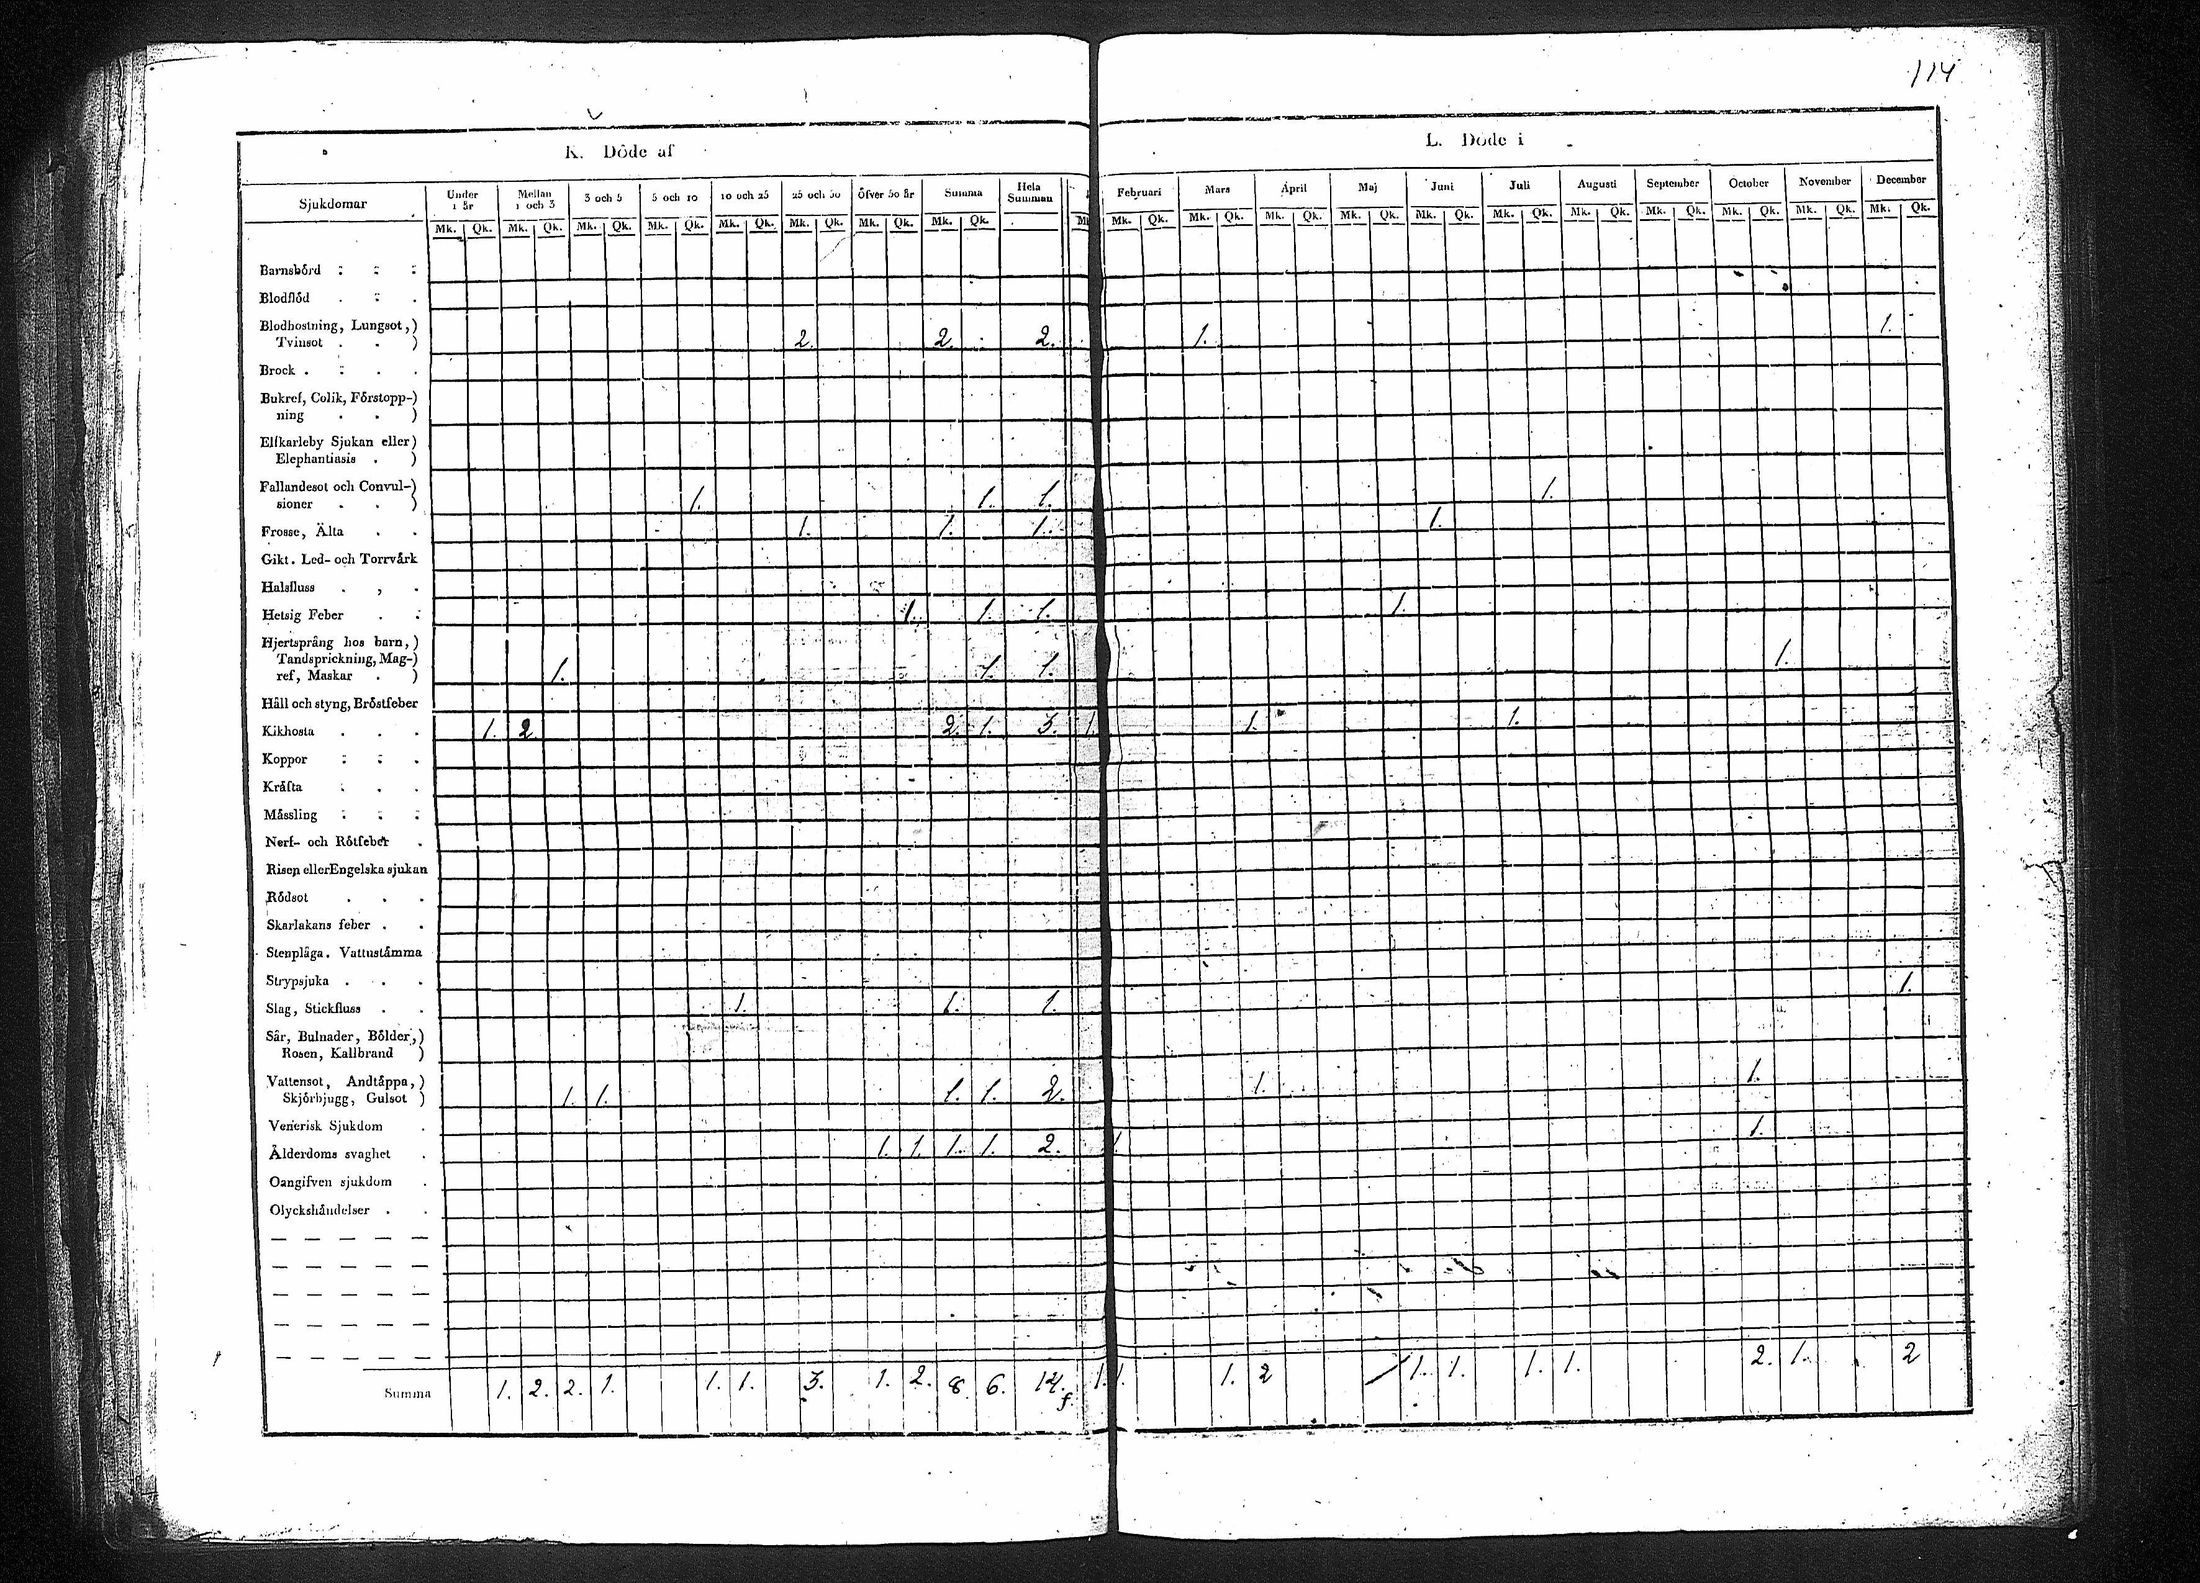 114
K. Döde af
L. Döde i
Sjukdomar Under 1 år Mellan 1 och 3 3 och 5 5 och 10 10 och 25 25 och 50 Öfver 50 år Summa Hela Summan Februari Mars April Maj Juni Juli Augusti September October November December
Mk. Qk. Mk. Qk. Mk. Qk. Mk. Qk. Mk. Qk. Mk. Qk. Mk. Qk. Mk. Qk. Mk. Mk. Qk. Mk. Qk. Mk. Qk. Mk. Qk. Mk. Qk. Mk. Qk. Mk. Qk. Mk. Qk. Mk. Qk. Mk. Qk. Mk. Qk.
Barnsbörd
Blodflöd
Blodhostning, Lungsot,)
Tvinsot ) 2. 2. 2. 1. 1.
Brock
Bukref, Colik, Förstopp-)
ning )
Elfkarleby Sjukan eller)
Elephantiasis )
Fallandesot och Convul-)
sioner ) 1. 1. 1. 1.
Frosse, Älta 1. 1. 1. 1.
Gikt. Led- och Torrvärk
Halsfluss
Hetsig Feber 1. 1. 1. 1.
Hjertsprång hos barn,)
Tandsprickning, Mag-)
ref, Maskar ) 1. 1. 1. 1.
Håll och styng, Bröstfeber
Kikhosta 1. 2 2. 1. 3. 1. 1. 1.
Koppor
Kräfta
Mässling
Nerf- och Rötfeber
Risen eller Engelska sjukan
Rödsot
Skarlakans feber
Stenplåga. Vattustämma
Strypsjuka
Slag, Stickfluss 1. 1. 1. 1.
Sår, Bulnader, Bölder,)
Rosen, Kallbrand )
Vattensot, Andtäppa,)
Skjörbjugg, Gulsot ) 1. 1. 1. 1. 2. 1. 1.
Venerisk Sjukdom
Ålderdoms svaghet 1. 1. 1. 1. 2. 1. 1.
Oangifven sjukdom
Olyckshändelser
Summa 1. 2. 2. 1. 1. 1. 3. 1. 2. 8. 6. 14. 1. 1. 1. 2 1. 1. 1. 1. 2. 1. 2